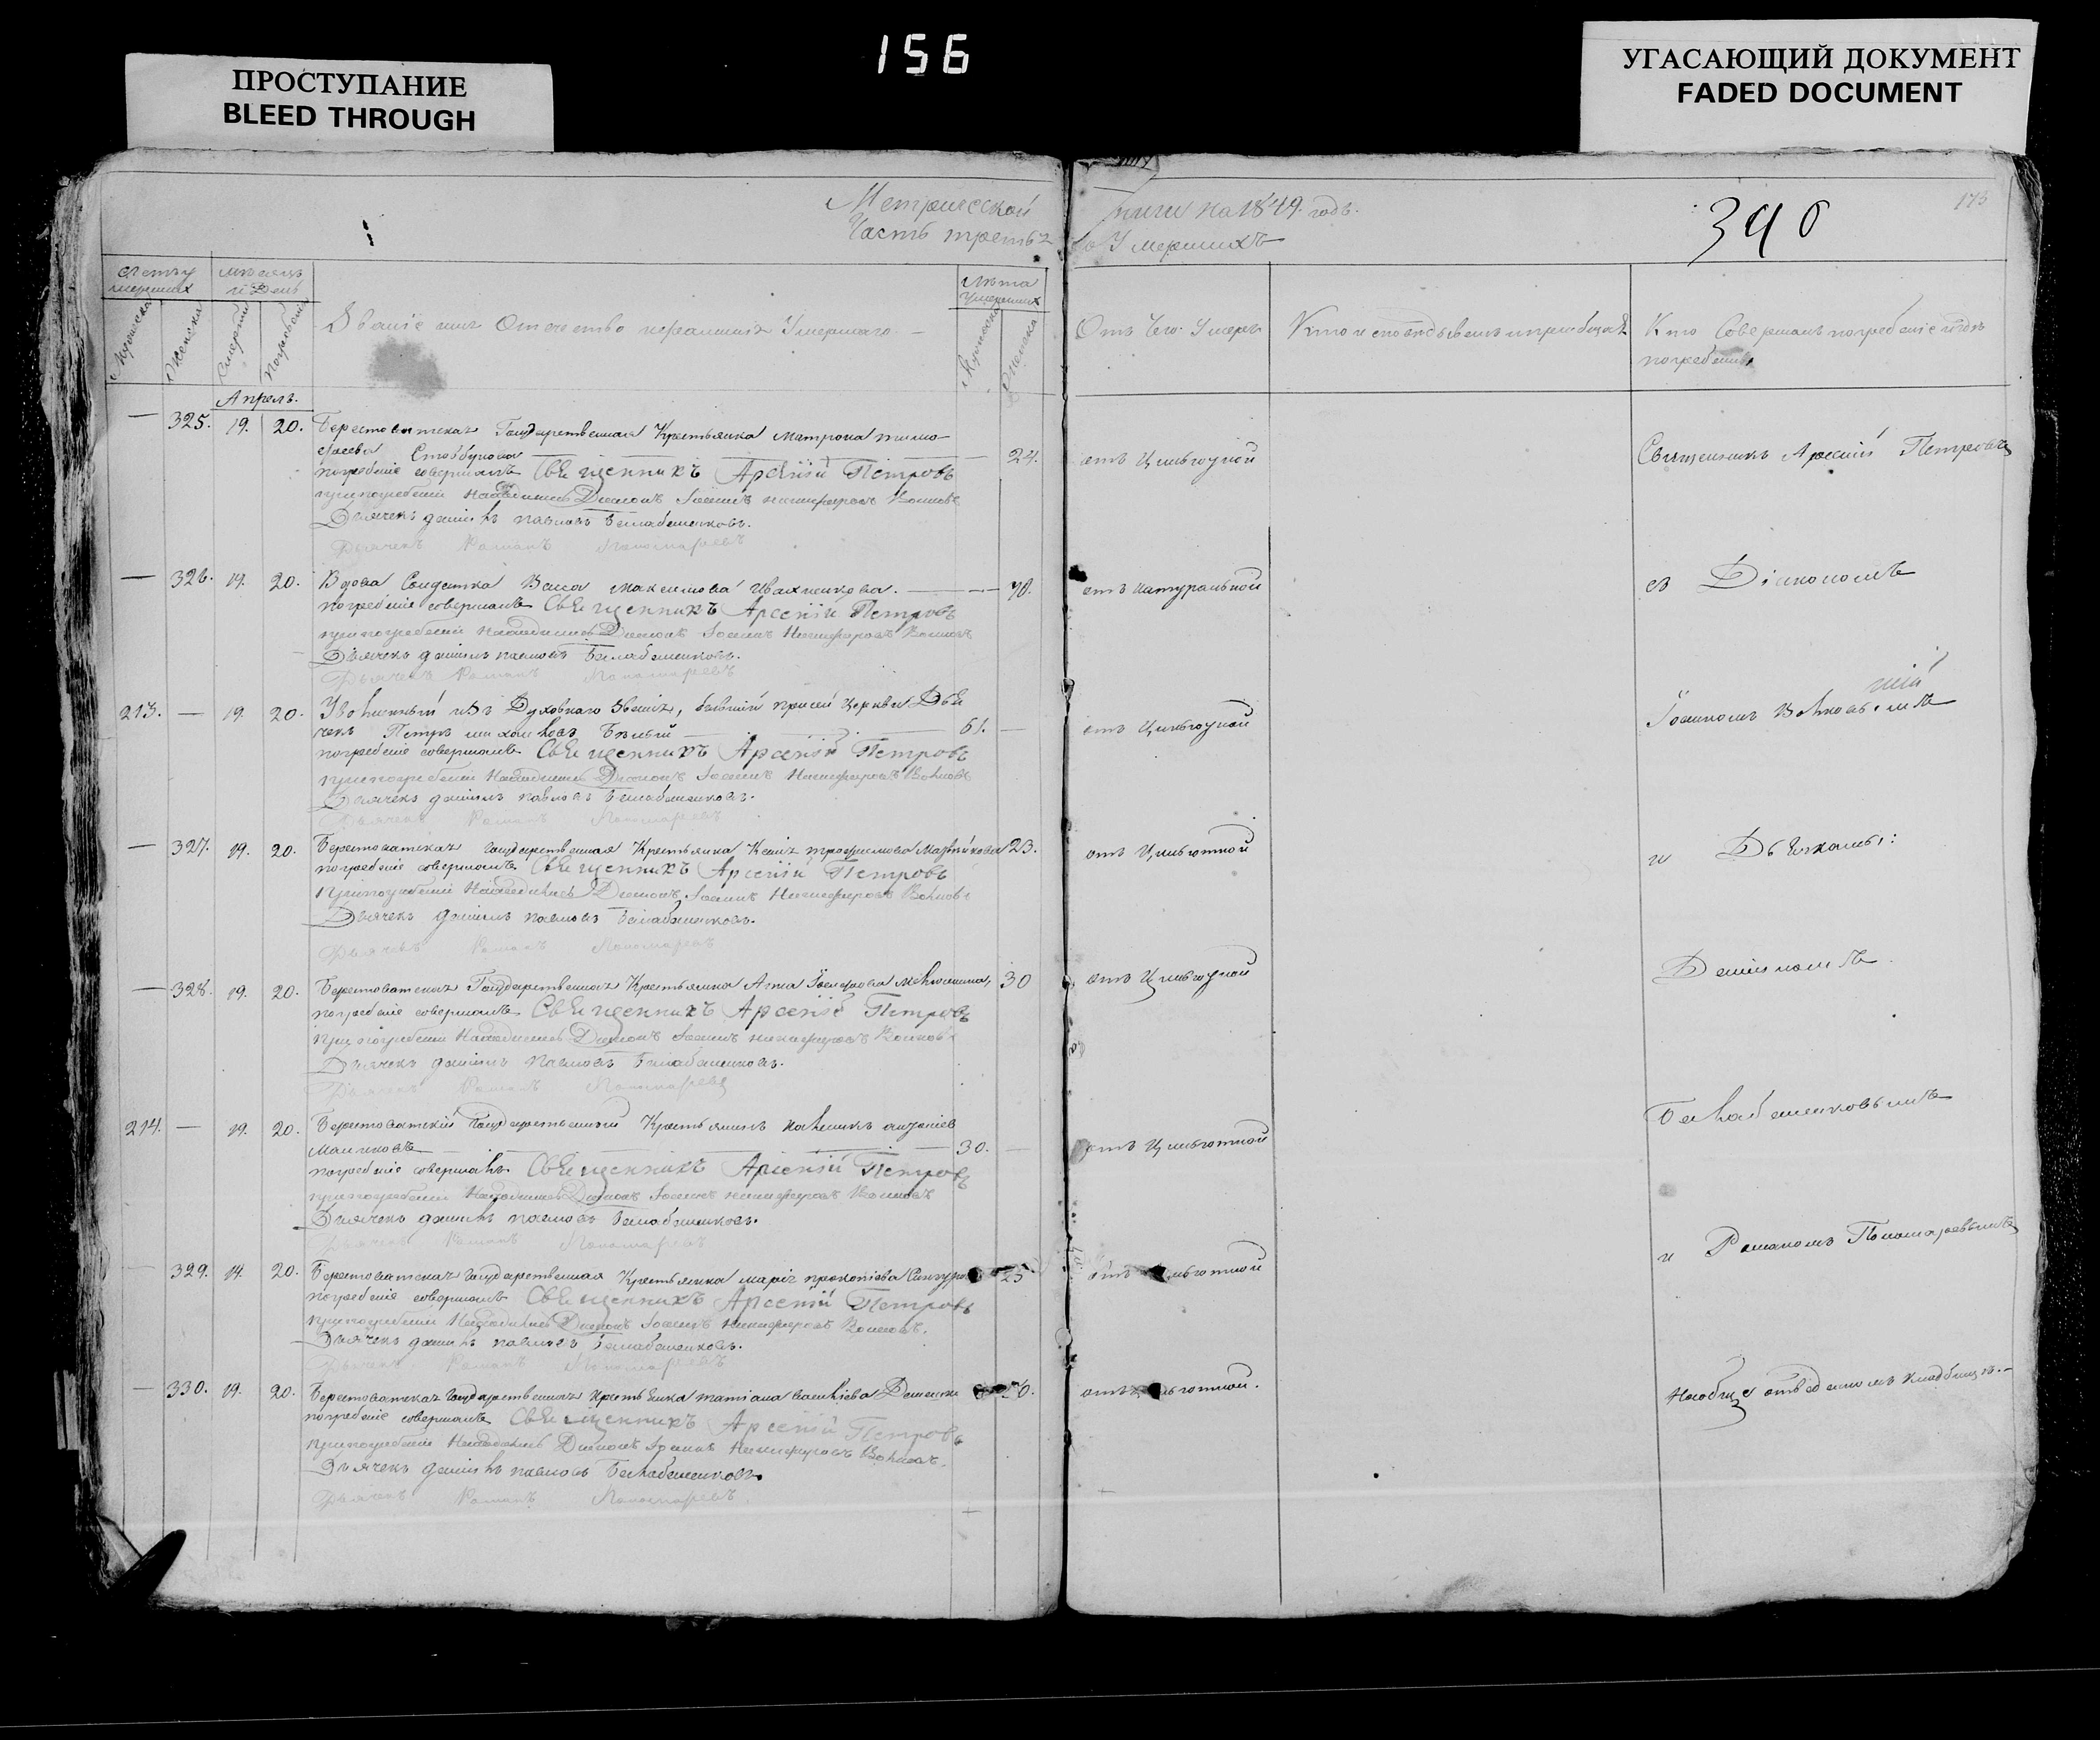 156
ПРОСТУПАНИЕ
BLEED THROUGH
УГАСАЮЩИЙ ДОКУМЕНТ
FADED DOCUMENT
Метрической
Часть третья
книги на 1849. годъ.
о Умершихъ
340
173
умершихъ
мѣсяцъ и день
Лѣта умершихъ
Мужеска
Женска
Смерти
Погребенія
Званіе имя Отечество Умершаго.
Мужеска
Женска
Отъ Чего Умеръ
Кто исповѣдывалъ и пріобщалъ
Кто Совершалъ погребеніе и гдѣ
погребены
Апрель.
— 325. 19. 20. Берестоватская Государственная Крестьянка Матрона Тимо-
24. отъ Цынготной
Священникъ Арсеній Петровъ
погребеніе совершалъ Священникъ Арсеній Петровъ
при погребеніи находились Діаконъ Іоаннъ Никифоровъ Волковъ
Дьячекъ Даніилъ Павловъ Балабаненковъ.
Дьячекъ Романъ Пономаревъ
— 326. 19. 20. Вдова Солдатка Васса Максимова Ивахненкова. 70. отъ натуральной
съ Діакономъ
погребеніе совершалъ Священникъ Арсеній Петровъ
при погребеніи находились Діаконъ Іоаннъ Никифоровъ Волковъ
Дьячекъ Даніилъ Павловъ Балабаненковъ.
Дьячекъ Романъ Пономаревъ
213. — 19. 20. Уволенный изъ Духовнаго Званія, бывшій при сей Церкви Дья
чекъ Петръ Михайловъ Бѣлый 61. — отъ Цынготной
Іоанномъ Волковымъ
погребеніе совершалъ Священникъ Арсеній Петровъ
при погребеніи находились Діаконъ Іоаннъ Никифоровъ Волковъ
Дьячекъ Даніилъ Павловъ Балабаненковъ.
Дьячекъ Романъ Пономаревъ
— 327. 19. 20. Берестоватская Государственная Крестьянка Ксенія Трофимова 23. отъ Цынготной
и Дьячками:
погребеніе совершалъ Священникъ Арсеній Петровъ
При погребеніи Находились Діаконъ Іоаннъ Никифоровъ Волковъ
Дьячекъ Даніилъ Павловъ Балабаненковъ.
Дьячекъ Романъ Пономаревъ
— 328. 19. 20. Берестоватская Государственная Крестьянка Анна 30 отъ Цынготной
Даніиломъ
погребеніе совершалъ Священникъ Арсеній Петровъ
При погребеніи Находились Діаконъ Іоаннъ Никифоровъ Волковъ
Дьячекъ Даніилъ Павловъ Балабаненковъ.
Дьячекъ Романъ Пономаревъ
214. — 19. 20. Берестоватскій Государственный Крестьянинъ
30. — отъ Цынготной
Балабаненковымъ
погребеніе совершалъ Священникъ Арсеній Петровъ
при погребеніи Находились Діаконъ Іоаннъ Никифоровъ Волковъ
Дьячекъ Даніилъ Павловъ Балабаненковъ.
Дьячекъ Романъ Пономаревъ
— 329. 19. 20. Берестоватская Государственная Крестьянка Марія Прокопіева 25 отъ
и Романомъ Пономаревымъ
погребеніе совершалъ Священникъ Арсеній Петровъ
при погребеніи Находились Діаконъ Іоаннъ Никифоровъ Волковъ.
Дьячекъ Даніилъ Павловъ Балабаненковъ.
Дьячекъ Романъ Пономаревъ
— 330. 19. 20. Берестоватская Государственная Крестьянка Татіана Василіева отъ
На общемъ отведенномъ кладбищѣ.—
погребеніе совершалъ Священникъ Арсеній Петровъ
при погребеніи Находились Діаконъ Іоаннъ Никифоровъ Волковъ.
Дьячекъ Даніилъ Павловъ Балабаненковъ.
Дьячекъ Романъ Пономаревъ.